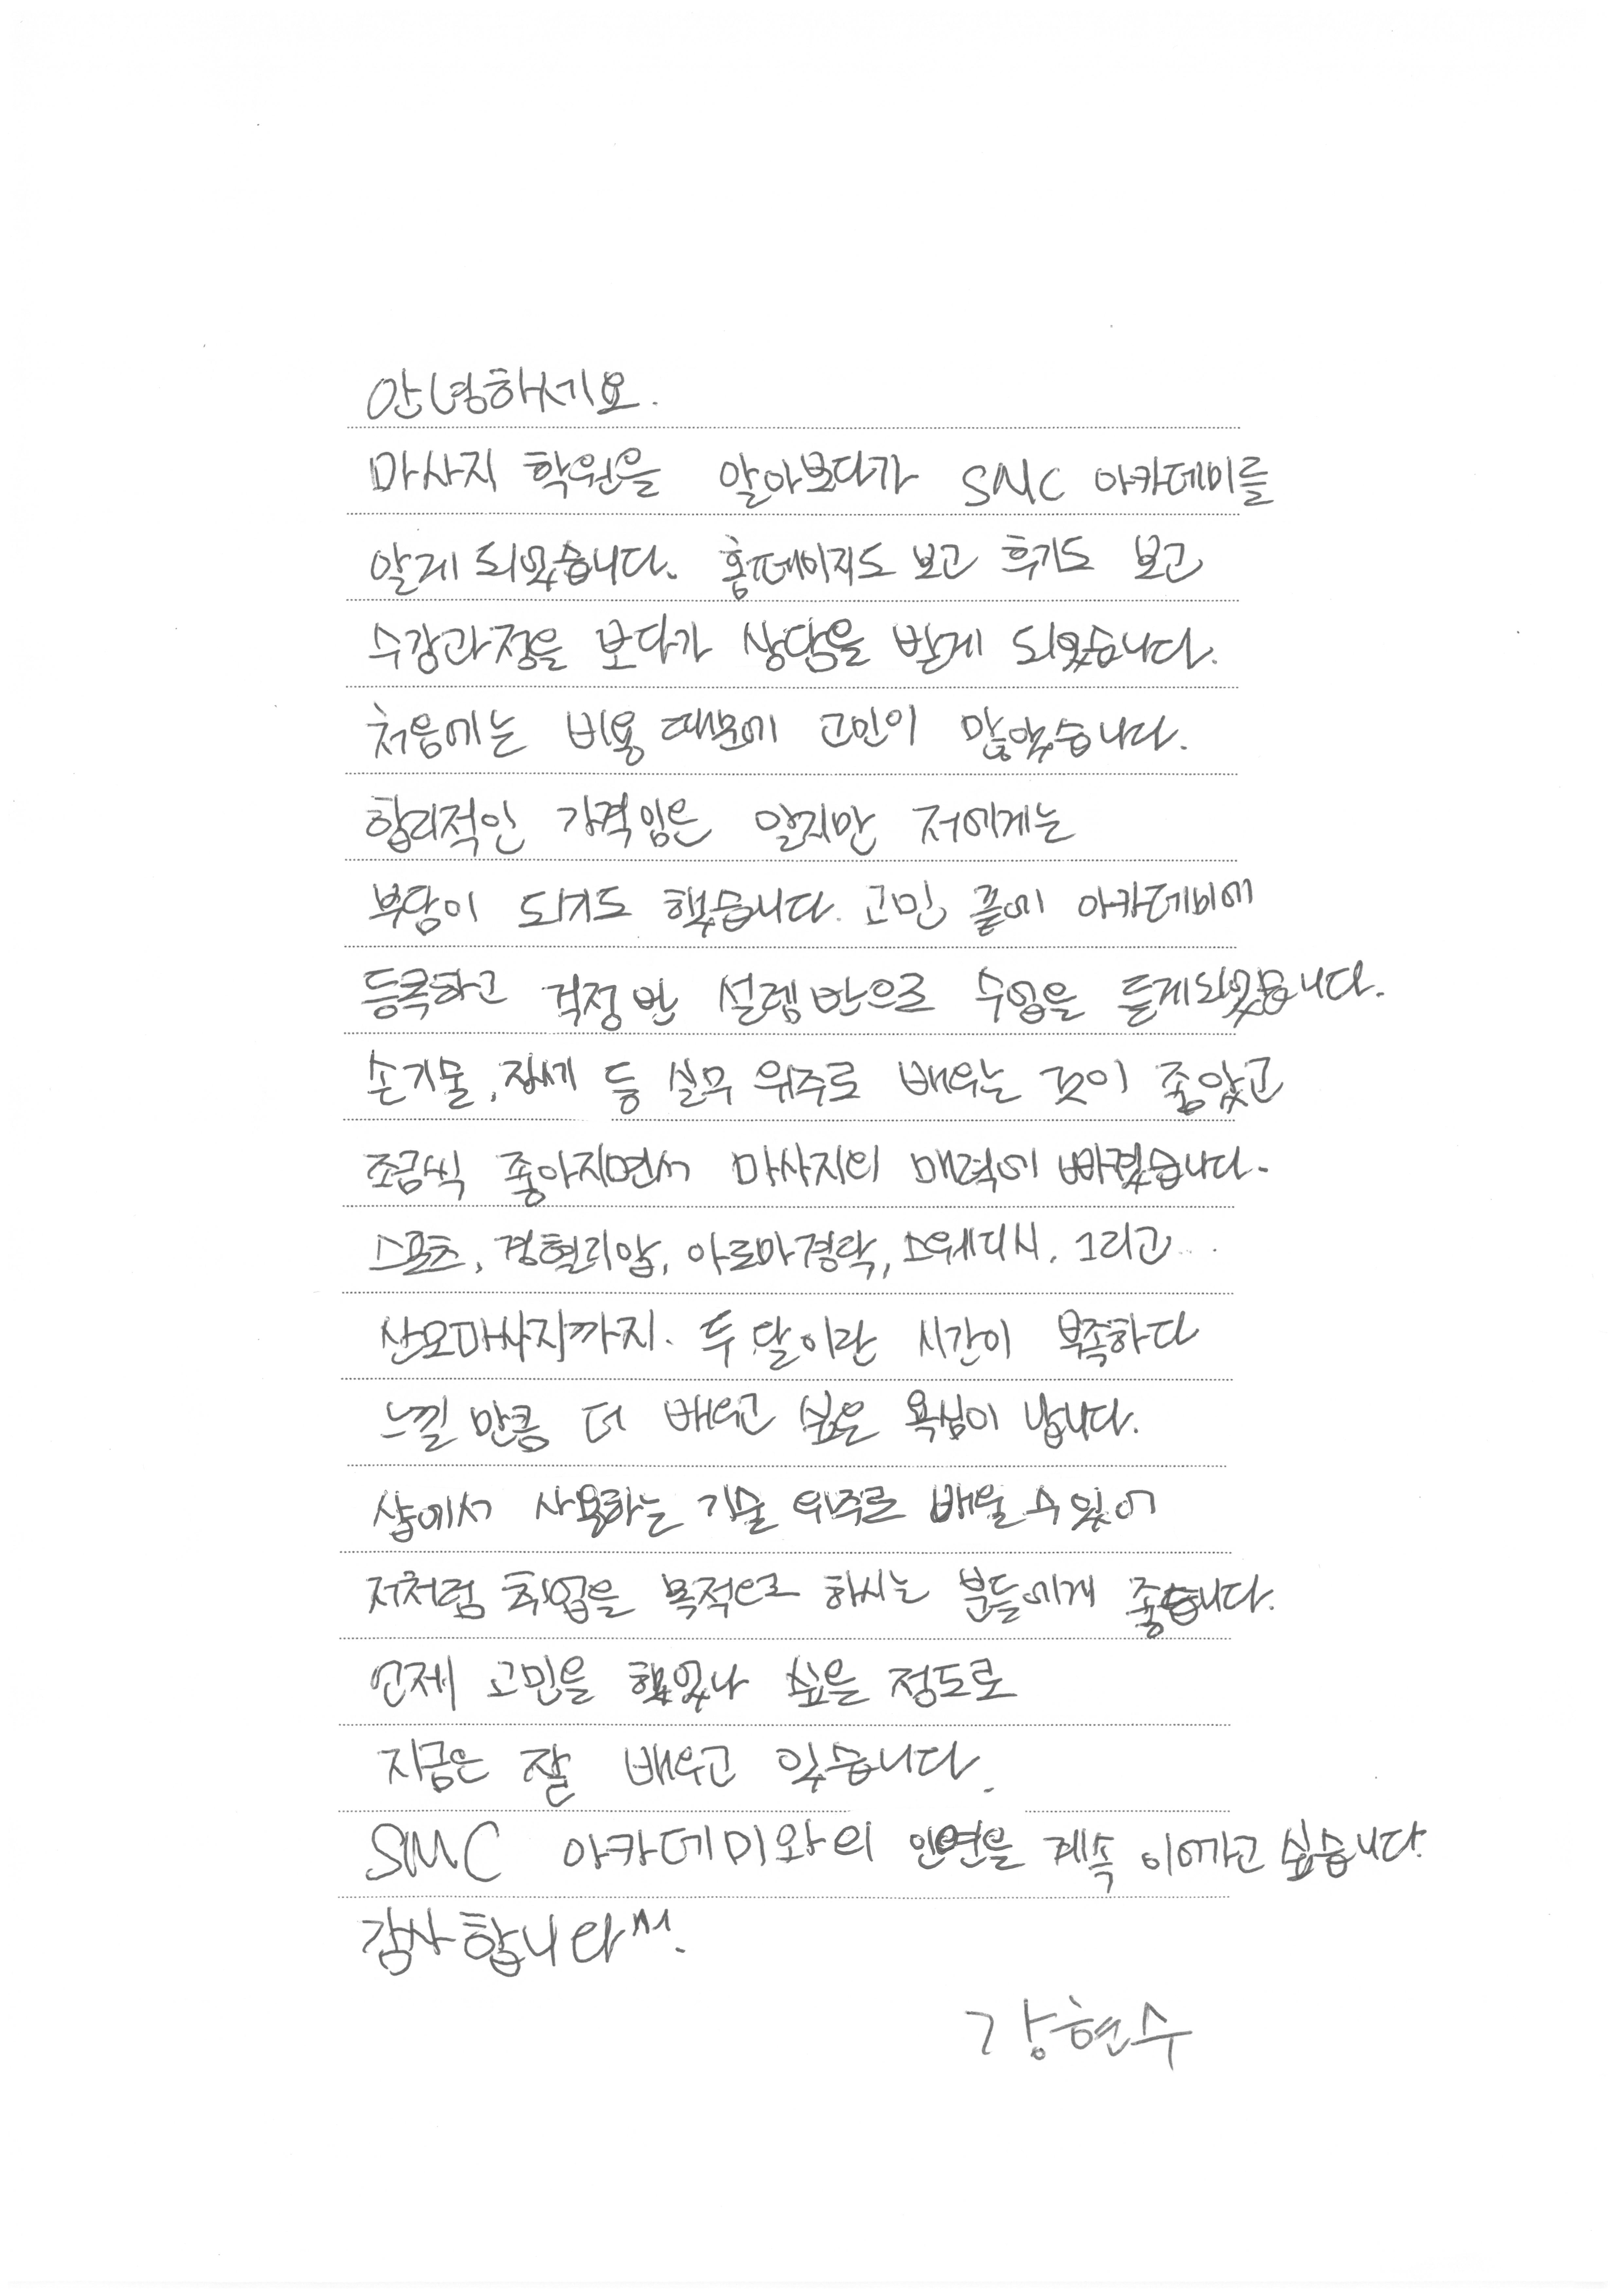 안녕하세요.
마사지 학원을 알아보다가 SMC 아카데미를
알게 되었습니다. 홈페이지도 보고 후기도 보고
수강과정을 보다가 상담을 받게 되었습니다.
처음에는 비용 때문에 고민이 많았습니다.
합리적인 가격임은 알지만 저에게는
부담이 되기도 했습니다. 고민 끝에 아카데미에
등록하고 걱정 반 설렘 반으로 수업을 듣게되었습니다.
손기물, 자세 등 실무 위주로 배우는 것이 좋았고
조금씩 좋아지면서 마사지의 매력에 빠졌습니다.
스포츠, 경혈지압, 아로마경락, 스웨디시, 그리고...
산모마사지까지. 두 달이란 시간이 부족하다
느낄 만큼 더 배우고 싶은 욕심이 납니다.
샵에서 사용하는 기술 위주로 배울 수 있어
저처럼 취업을 목적으로 하시는 분들에게 좋습니다.
언제 고민을 했었나 싶을 정도로
지금은 잘 배우고 있습니다.
SMC 아카데미와의 인연을 계속 이어가고 싶습니다.
감사합니다^^.
강현수